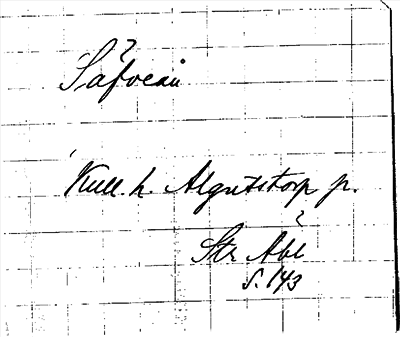 Säfveån
Kull. h. Algutstorp p.
Str Abl
S. 143